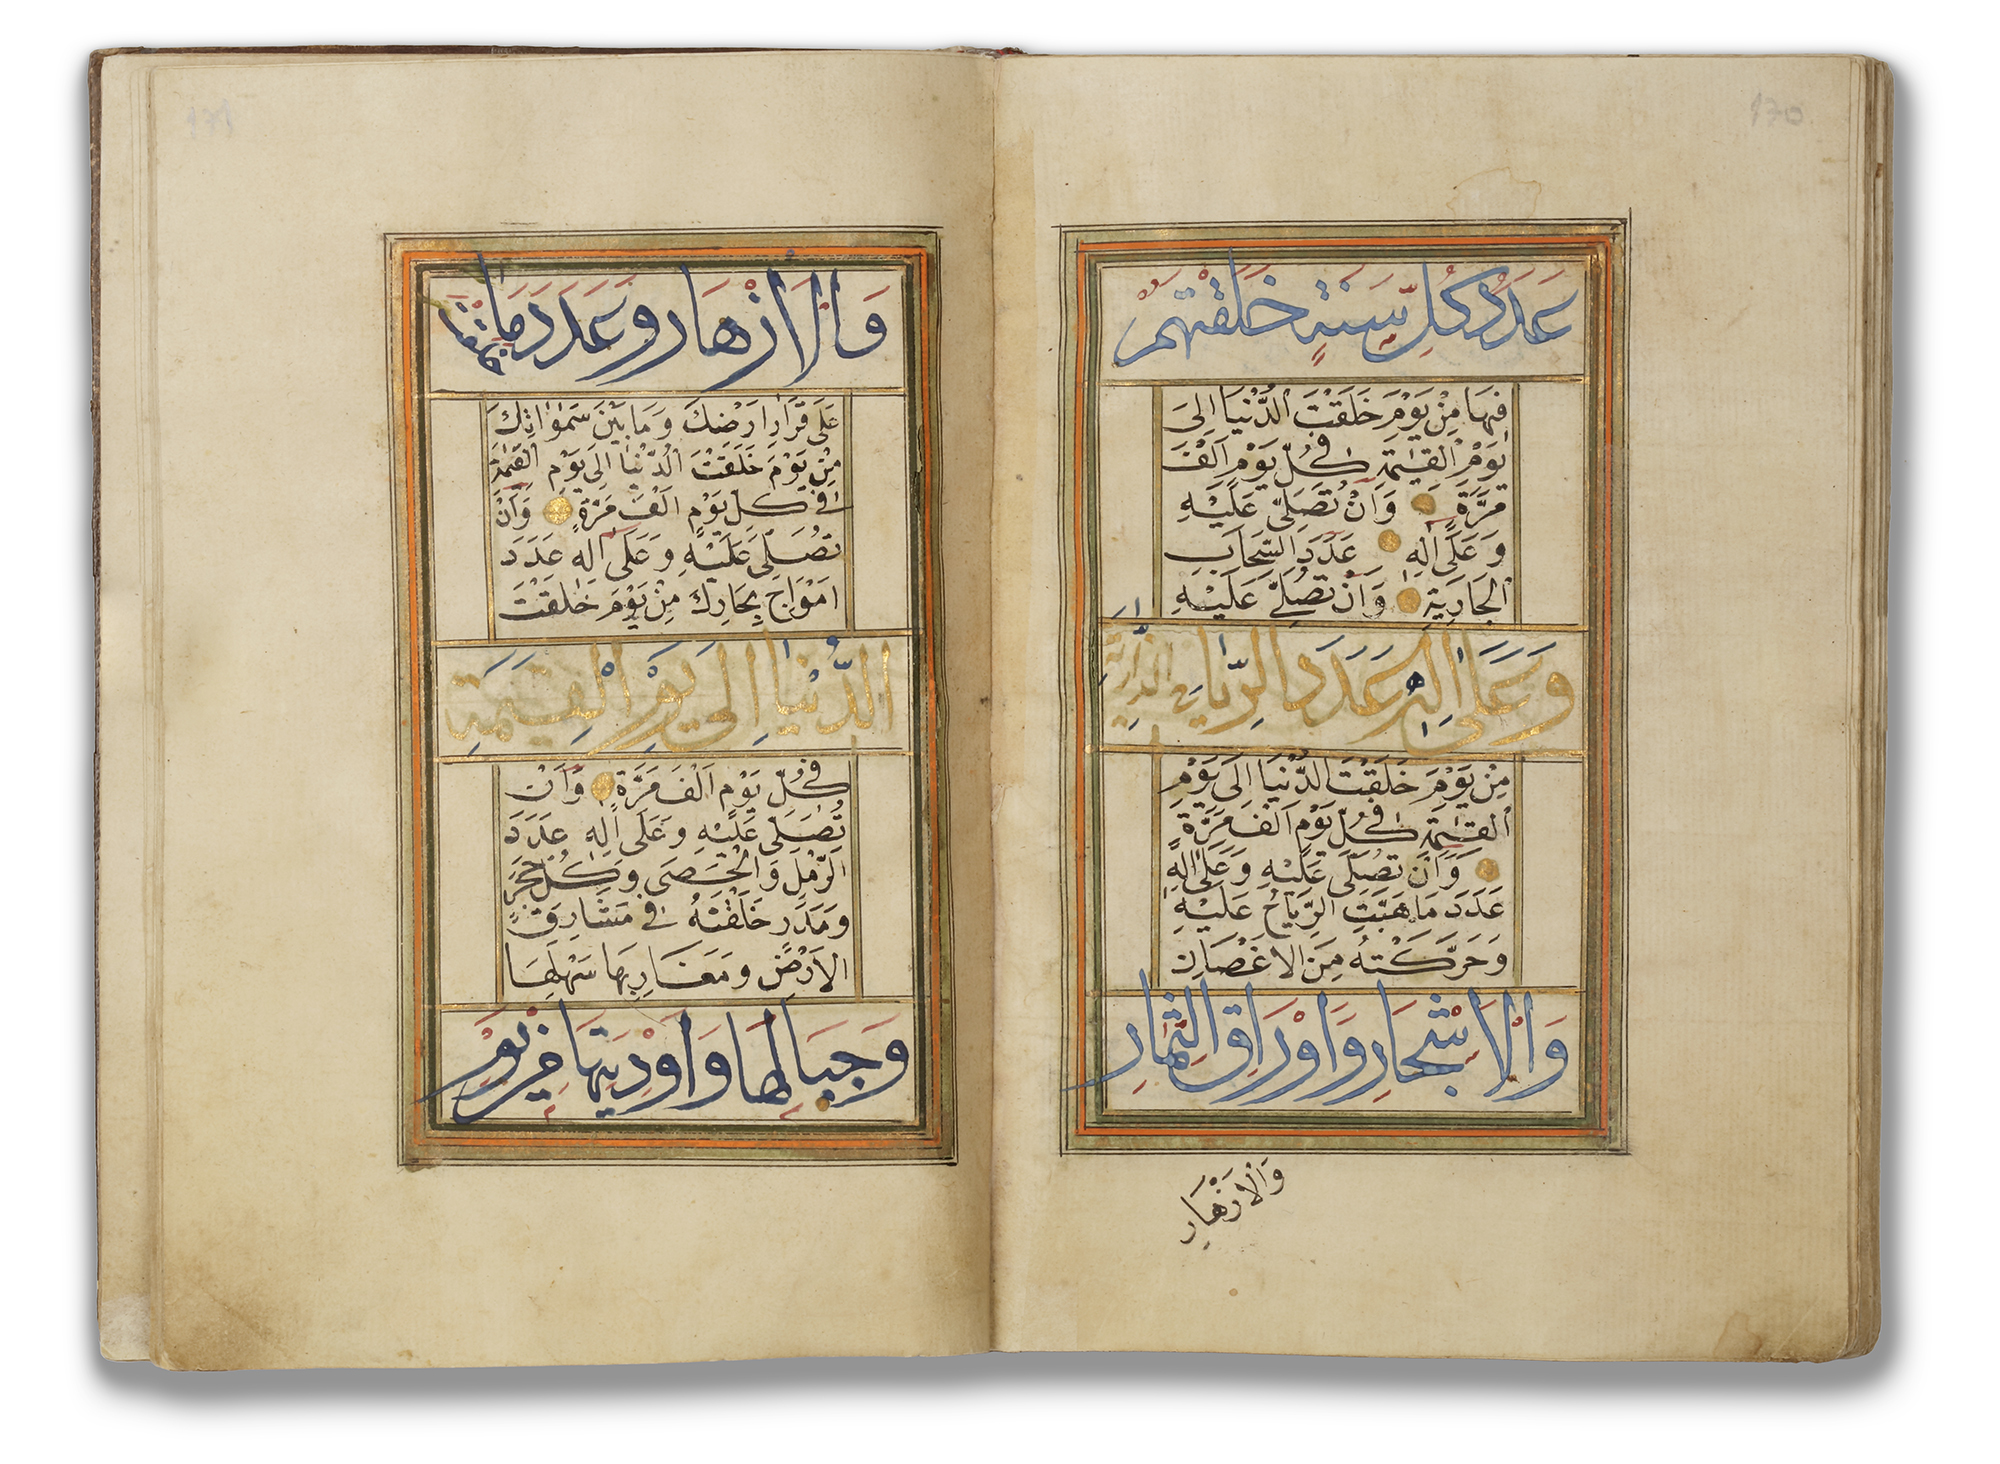 170
عَدَدَ كُلِّ سَنَةٍ خَلَقْتَهُمْ
فِيهَا مِنْ يَوْمَ خَلَقْتَ الدُّنْيَا اِلَى
يَوْمِ الْقِيٰمَةِ فِى كُلِّ يَوْمٍ اَلْفَ
مَرَّةٍ وَاَنْ تُصَلِّىَ عَلَيْهِ
وَعَلَى اٰلِهِ عَدَدَ السَّحَابِ
الْجَارِيَةِ وَاَنْ تُصَلِّىَ عَلَيْهِ
وَعَلَى اٰلِهِ عَدَدَ الرِّيَاحِ الذَّارِيَةِ
مِنْ يَوْمَ خَلَقْتَ الدُّنْيَا اِلَى يَوْمِ
الْقِيٰمَةِ فِى كُلِّ يَوْمٍ اَلْفَ مَرَّةٍ
وَاَنْ تُصَلِّىَ عَلَيْهِ وَعَلَى اٰلِهِ
عَدَدَ مَا هَبَّتِ الرِّيَاحُ عَلَيْهِ
وَحَرَّكَتْهُ مِنَ الْاَغْصَانِ
وَالْاَشْجَارِ وَاَوْرَاقِ الثِّمَارِ
وَالْاَزْهَارِ
171
وَالْاَزْهَارِ وَعَدَدَ مَا خَلَقْتَ
عَلَى قَرَارِ اَرْضِكَ وَمَا بَيْنَ سَمٰوَاتِكَ
مِنْ يَوْمَ خَلَقْتَ الدُّنْيَا اِلَى يَوْمِ الْقِيٰمَةِ
فِى كُلِّ يَوْمٍ اَلْفَ مَرَّةٍ وَاَنْ
تُصَلِّىَ عَلَيْهِ وَعَلَى اٰلِهِ عَدَدَ
اَمْوَاجِ بِحَارِكَ مِنْ يَوْمَ خَلَقْتَ
الدُّنْيَا اِلَى يَوْمِ الْقِيٰمَةِ
فِى كُلِّ يَوْمٍ اَلْفَ مَرَّةٍ وَاَنْ
تُصَلِّىَ عَلَيْهِ وَعَلَى اٰلِهِ عَدَدَ
الرَّمْلِ وَالْحَصَى وَكُلِّ حَجَرٍ
وَمَدَرٍ خَلَقْتَهُ فِى مَشَارِقِ
الْاَرْضِ وَمَغَارِبِهَا سَهْلِهَا
وَجِبَالِهَا وَاَوْدِيَتِهَا مِنْ يَوْمِ